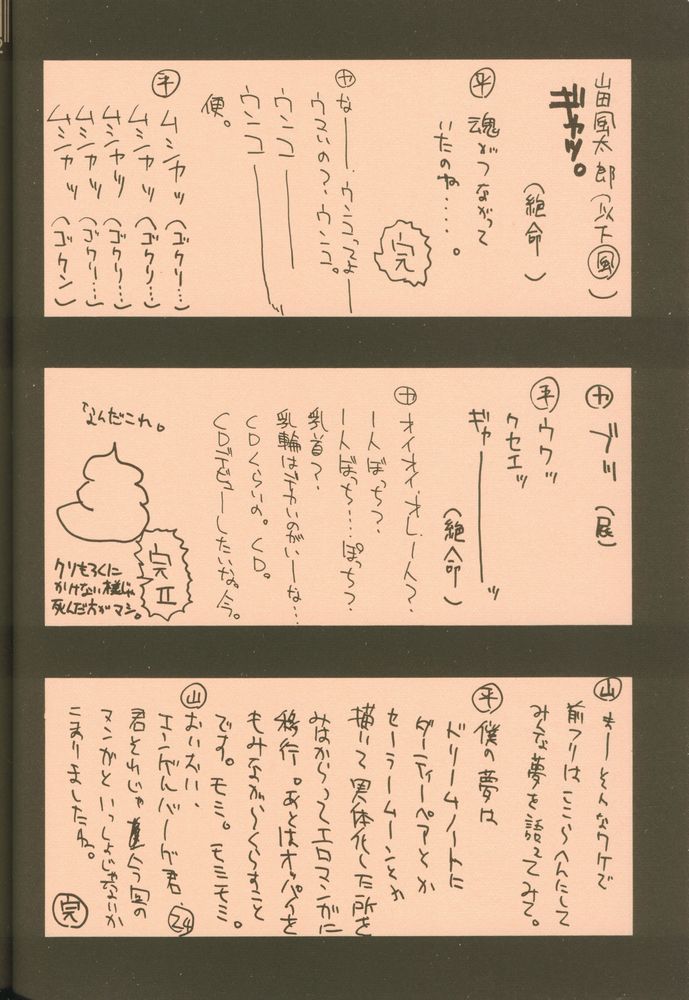 山田風太郎（以下風）
ギャッ。
（絶命）
平 魂がつながって
いたのね‥‥。
完
カ なー、ウンコってよー
ウマいの？、ウンコ。
ウンコ――
ウンコ――
便。
平 ムシャッ（ゴクリ…）
ムシャッ（ゴクリ…）
ムシャッ（ゴクリ…）
ムシャッ（ゴクリ…）
ムシャッ（ゴクン）
カ ブッ（屁）
平 ウウッ
クセエッ
ギャーーーッ
（絶命）
カ オイオイ、オレ一人？、
一人ぼっち？、
一人ぼっち…ぽっち？、
乳首？、
乳輪はデカいのがいーな…
CDくらいの。CD。
CDデビューしたいな。今。
なんだこれ。
完II
クソもろくに
かけない様じゃ
死んだ方がマシ。
山 まーそんなワケで
前フリはここらへんにして
みんな夢を語ってみて。
平 僕の夢は
ドリームノートに
ダーティーペアとか
セーラームーンとか
描いて実体化した所を
みはからってエロマンガに
移行。あとはオッパイを
もみながらくらすこと
です。モミ。モミモミ。
山 おいおい、
エンゲルバーグ君、24
君それじゃ今回の
マンガといっしょじゃないか
こまりましたね。
完